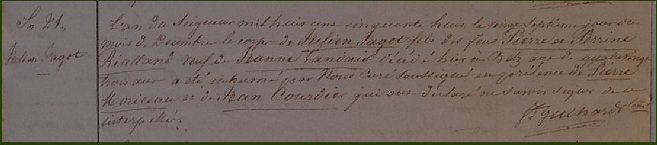 N° 21.
Julien Pagot
L'an du Seigneur mil huit cent cinquante huit le vingt septième jour du
mois de Decembre le corps de Julien Pagot fils des feus Pierre et Perrine
Rialland veuf de Jeanne Landais décédé hier à Betz age de quatre vingt
trois ans a été inhumé par Nous Curé soussigné en présence de Pierre
Moriceau et de Jean Courdier qui ont déclaré ne savoir signer de ce
interpellés.